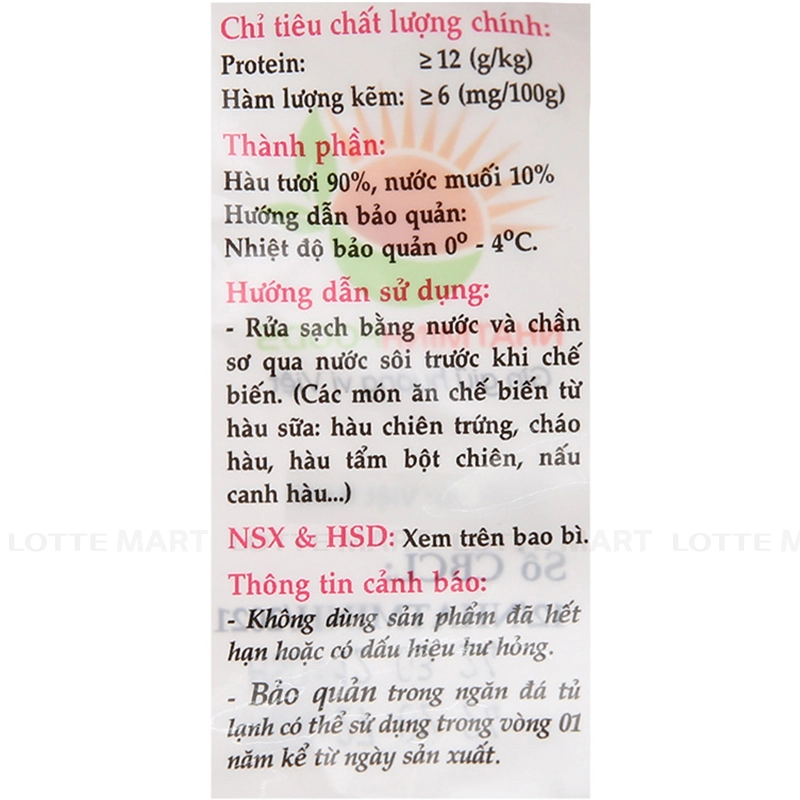 Chỉ tiêu chất lượng chính:
Protein: ≥ 12 (g/kg)
Hàm lượng kẽm: ≥ 6 (mg/100g)
Thành phần:
Hàu tươi 90%, nước muối 10%
Hướng dẫn bảo quản:
Nhiệt độ bảo quản 0⁰ - 4⁰C.
Hướng dẫn sử dụng:
- Rửa sạch bằng nước và chần
sơ qua nước sôi trước khi chế
biến. (Các món ăn chế biến từ
hàu sữa: hàu chiên trứng, cháo
hàu, hàu tẩm bột chiên, nấu
canh hàu...)
NSX & HSD: Xem trên bao bì.
LOTTE MART
Thông tin cảnh báo:
- Không dùng sản phẩm đã hết
hạn hoặc có dấu hiệu hư hỏng.
- Bảo quản trong ngăn đá tủ
lạnh có thể sử dụng trong vòng 01
năm kể từ ngày sản xuất.